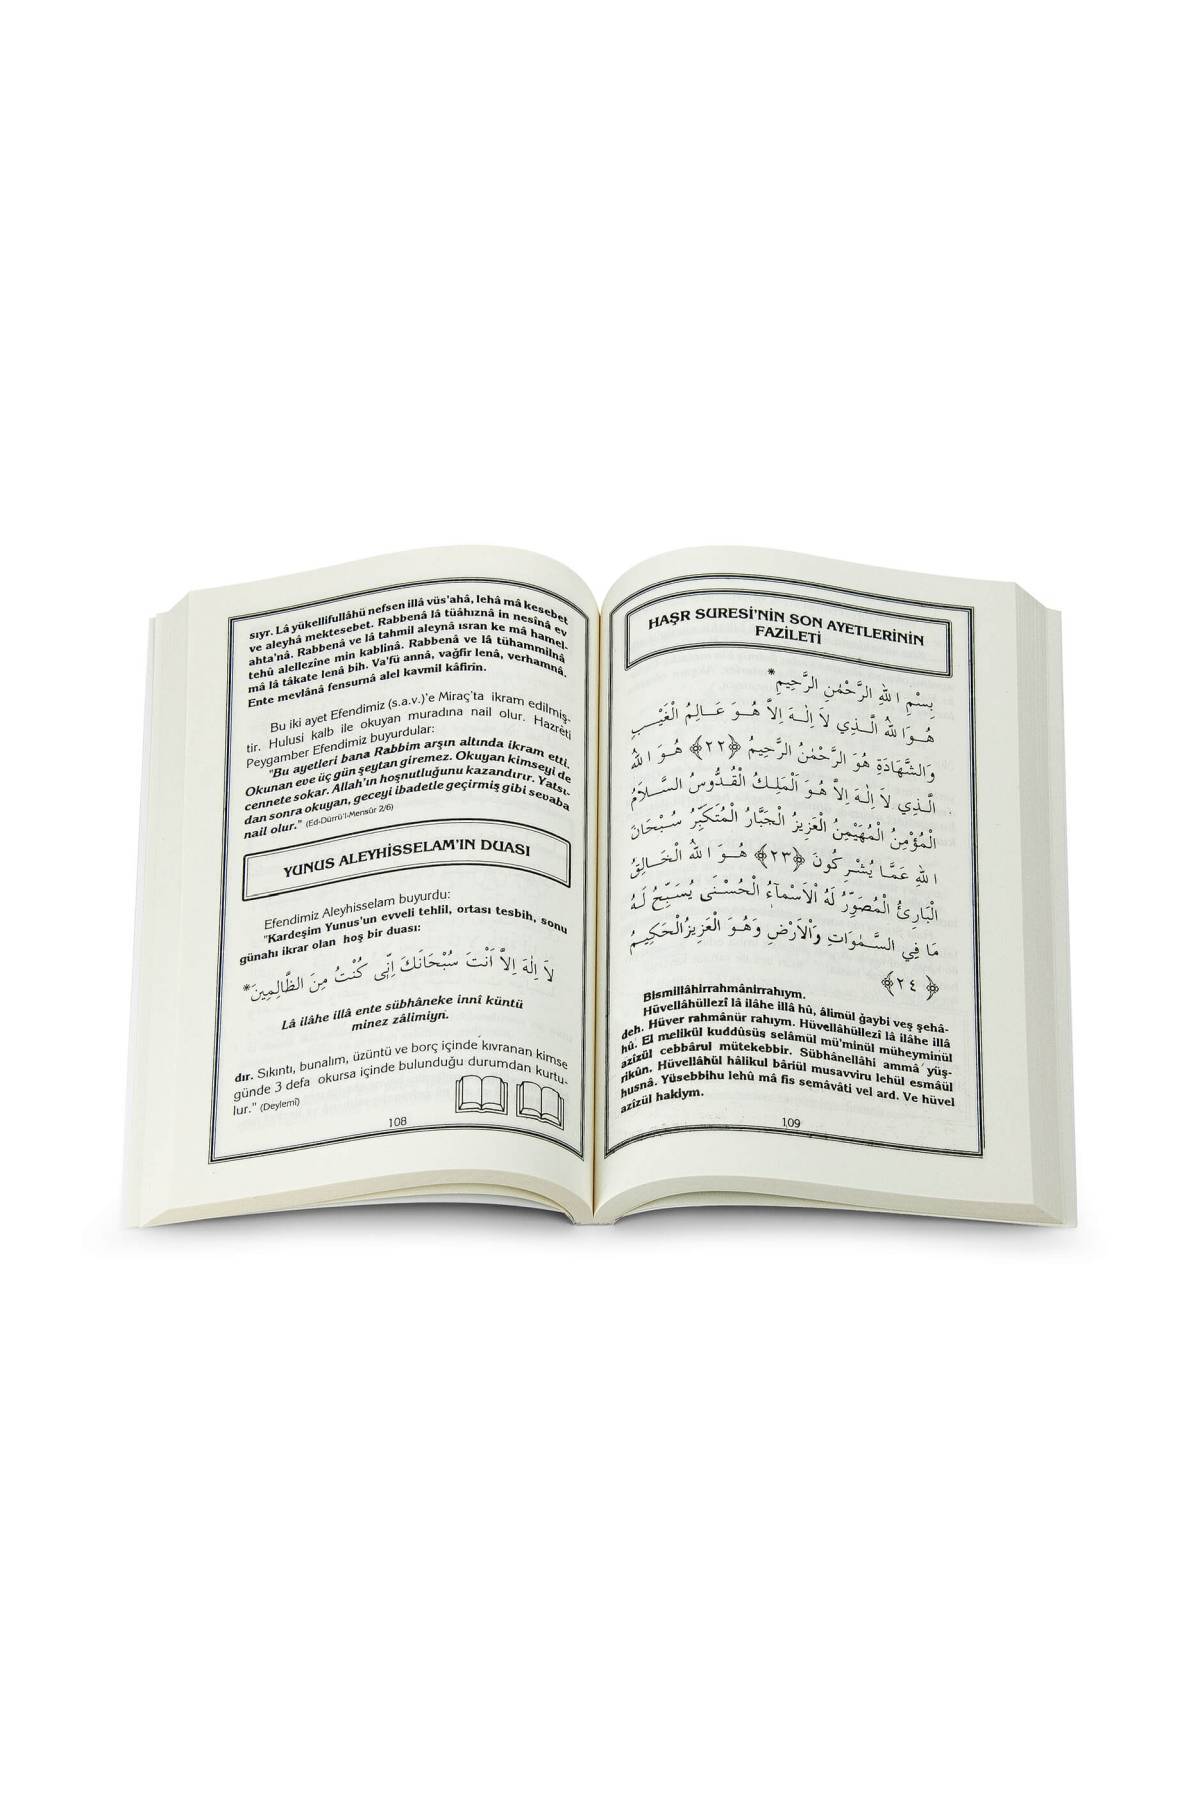 sıyr. Lâ yükellifullâhü nefsen illâ vüs'ahâ, lehâ mâ kesebet
ve aleyhâ mektesebet. Rabbenâ lâ tüâhıznâ in nesînâ ev
ahta'nâ. Rabbenâ ve lâ tahmil aleynâ ısran ke mâ hamel-
tehû alellezîne min kablinâ. Rabbenâ ve lâ tühammilnâ
mâ lâ tâkate lenâ bih. Va'fü annâ, vağfir lenâ, verhamnâ.
Ente mevlânâ fensurnâ alel kavmil kâfirîn.
Bu iki ayet Efendimiz (s.a.v.)'e Miraç'ta ikram edilmiş-
tir. Hulusi kalb ile okuyan muradına nail olur. Hazreti
Peygamber Efendimiz buyurdular:
"Bu ayetleri bana Rabbim arşın altında ikram etti.
Okunan eve üç gün şeytan giremez. Okuyan kimseyi de
cennete sokar. Allah'ın hoşnutluğunu kazandırır. Yatsı-
dan sonra okuyan, geceyi ibadetle geçirmiş gibi sevaba
nail olur." (Ed-Dürrü'l-Mensûr 2/6)
YUNUS ALEYHİSSELAM'IN DUASI
Efendimiz Aleyhisselam buyurdu:
"Kardeşim Yunus'un evveli tehlil, ortası tesbih, sonu
günahı ikrar olan hoş bir duası:
لاَ اِلٰهَ اِلاَّ اَنْتَ سُبْحَانَكَ اِنِّى كُنْتُ مِنَ الظَّالِمِينَ*
Lâ ilâhe illâ ente sübhâneke innî küntü
minez zâlimiyn.
dır. Sıkıntı, bunalım, üzüntü ve borç içinde kıvranan kimse
günde 3 defa okursa içinde bulunduğu durumdan kurtu-
lur." (Deylemî)
108
HAŞR SURESİ'NİN SON AYETLERİNİN
FAZİLETİ
بِسْمِ اللهِ الرَّحْمٰنِ الرَّحِيمِ*
هُوَ اللهُ الَّذِي لاَ اِلٰهَ اِلاَّ هُوَ عَالِمُ الْغَيْبِ
وَالشَّهَادَةِ هُوَ الرَّحْمٰنُ الرَّحِيمُ ﴿٢٢﴾ هُوَ اللهُ
الَّذِي لاَ اِلٰهَ اِلاَّ هُوَ اَلْمَلِكُ الْقُدُّوسُ السَّلاَمُ
الْمُؤْمِنُ الْمُهَيْمِنُ الْعَزِيزُ الْجَبَّارُ الْمُتَكَبِّرُ سُبْحَانَ
اللهِ عَمَّا يُشْرِكُونَ ﴿٢٣﴾ هُوَ اللهُ الْخَالِقُ
الْبَارِئُ الْمُصَوِّرُ لَهُ الْاَسْمآءُ الْحُسْنٰى يُسَبِّحُ لَهُ
مَا فِي السَّمٰوَاتِ وَالْاَرْضِ وَهُوَ الْعَزِيزُ الْحَكِيمُ
﴿٢٤﴾
Bismillâhirrahmânirrahıym.
Hüvellâhüllezî lâ ilâhe illâ hû, âlimül ğaybi veş şehâ-
deh. Hüver rahmânür rahıym. Hüvellâhüllezî lâ ilâhe illâ
hû. El melikül kuddûsüs selâmül mü'minül müheyminül
azîzül cebbârul mütekebbir. Sübhânellâhi ammâ yüş-
rikûn. Hüvellâhül hâlikul bâriül musavviru lehül esmâül
husnâ. Yüsebbihu lehû mâ fis semâvâti vel ard. Ve hüvel
azîzül hakiym.
109